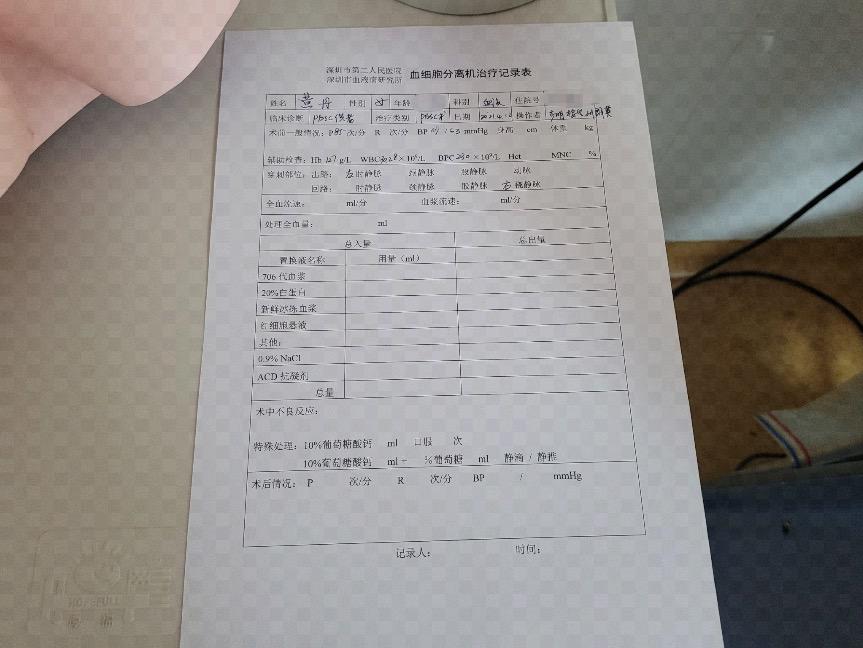 深圳市第二人民医院
深圳市血液病研究所
血细胞分离机治疗记录表
姓名 黄丹 性别 女 年龄 科别 血液 住院号
临床诊断 PBSC供者 治疗类别 PBSC采 日期 2021.4. 操作者
术前一般情况：P 85 次/分 R 次/分 BP / 63 mmHg 身高 cm 体重 kg
辅助检查：Hb 127 g/L WBC 28×10⁹/L DPC 230×10⁹/L Hct MNC %
穿刺部位：出路：左肘静脉 颈静脉 股静脉 动脉
回路：肘静脉 颈静脉 股静脉 右桡静脉
全血流速： ml/分 血浆流速： ml/分
处理全血量： ml
总入量 总出量
置换液名称 用量（ml）
706 代血浆
20%白蛋白
新鲜冰冻血浆
红细胞悬液
其他：
0.9% NaCl
ACD 抗凝剂
总量
术中不良反应：
特殊处理：10%葡萄糖酸钙 ml 口服 次
10%葡萄糖酸钙 ml + %葡萄糖 ml 静滴 / 静推
术后情况：P 次/分 R 次/分 BP / mmHg
记录人： 时间：
HOPEFULL